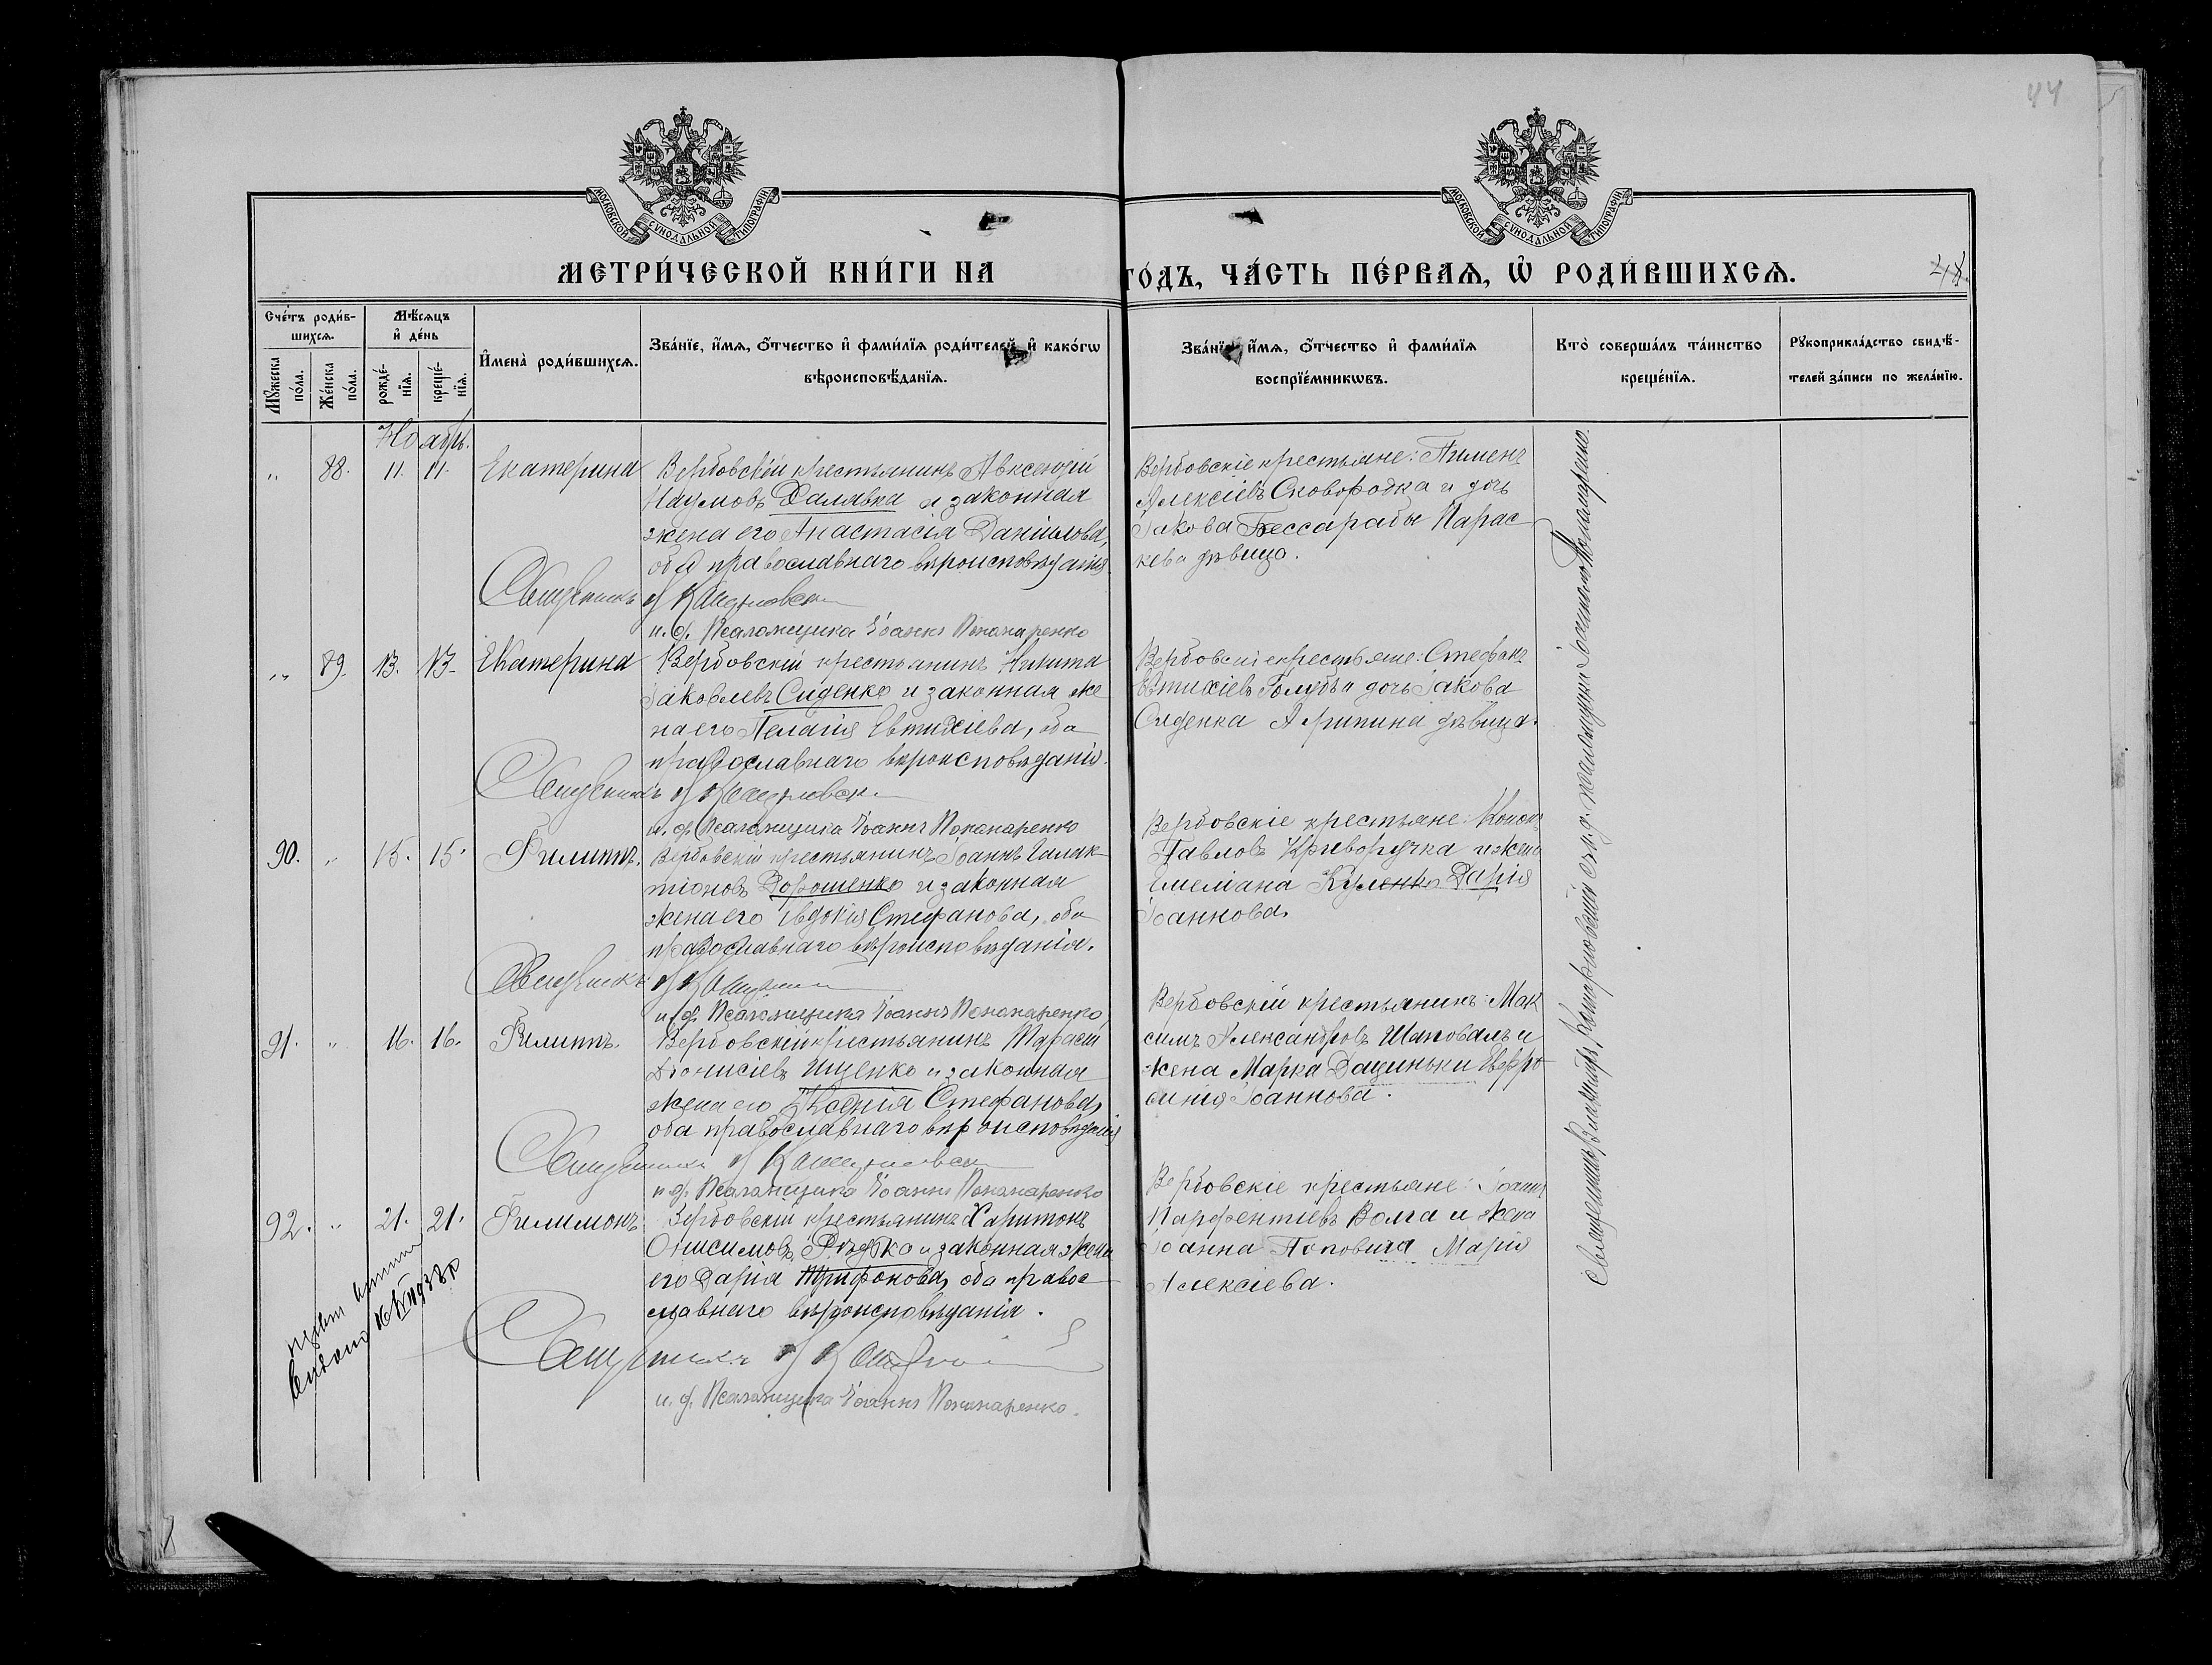 44
МОСКОВСКОЙ СѴНОДАЛЬНОЙ ТИПОГРАФІИ
МОСКОВСКОЙ СѴНОДАЛЬНОЙ ТИПОГРАФІИ
МЕТРИ́ЧЕСКОЙ КНИ́ГИ НА ГО́ДЪ, ЧА́СТЬ ПЕ́РВАѦ, Ѿ РОДИ́ВШИХСѦ.
Сче́тъ роди́в-
шихсѧ.
Мꙋ́жеска по́ла.
Же́нска по́ла.
Мѣ́сѧцъ
и҆ де́нь
рожде́-
нїѧ.
креще́-
нїѧ.
И҆мена̀ роди́вшихсѧ.
Зва́нїе, и҆́мѧ, ѻ҆́тчество и҆ фами́лїѧ роди́телей, и҆ како́гѡ
вѣроисповѣ́данїѧ.
Зва́нїе, и҆́мѧ, ѻ҆́тчество и҆ фами́лїѧ
воспрїе́мникѡвъ.
Кто̀ соверша́лъ та́инство
креще́нїѧ.
Рꙋкоприкла́дство свидѣ́-
телей за́писи по жела́нїю.
Ноябрь.
" 88. 11. 11. Екатерина
Вербовскій крестьянинъ Авксентій
Наумовъ Халявка и законная
жена его Анастасія Даніилова,
оба православнаго вѣроисповѣданія
Священникъ
и. д. Псаломщика Іоаннъ Понамаренко
Вербовскіе крестьяне: Пименъ
Алексіевъ Сковородка и дочь
Іакова Бессарабы Парас-
кева дѣвица.
" 89. 13. 13. Екатерина
Вербовскій крестьянинъ Никита
Іаковлевъ Сиденко и законная же
на его Пелагія Евтихіева, оба
православнаго вѣроисповѣданія.
Священникъ
и. д. Псаломщика Іоаннъ Понамаренко
Вербовскіе крестьяне: Стефанъ
Евтихіевъ Голубъ и дочь Іакова
Сиденка Агрипина дѣвица.
90. " 15. 15. Филиппъ.
Вербовскій крестьянинъ Іоаннъ Галак-
тіоновъ Дорошенко и законная
жена его Евдокія Стефанова, оба
православнаго вѣроисповѣданія.
Священникъ
и. д. Псаломщика Іоаннъ Понамаренко
Вербовскіе крестьяне: Кононъ
Павловъ Криворучка и жена
Емеліана Куленко Дарія
Іоаннова.
91. " 16. 16. Филиппъ.
Вербовскій крестьянинъ Тарасій
Діонисіевъ Ищенко и законная
жена его Стефанова,
оба православнаго вѣроисповѣданія
Священникъ
и. д. Псаломщика Іоаннъ Понамаренко
Вербовскій крестьянинъ: Мак
симъ Александровъ Шаповалъ и
жена Марка Дациньки Евфро
синія Іоаннова.
92. " 21. 21. Филимонъ.
Вербовскій крестьянинъ Харитонъ
Онисимовъ Рѣдка и законная жена
его Дарія Трифонова, оба правос
славнаго вѣроисповѣданія.
Священникъ
и. д. Псаломщика Іоаннъ Понамаренко.
Вербовскіе крестьяне: Іоаннъ
Парфентіевъ Волга и жена
Іоанна Поповича Марія
Алексіева.
Священникъ Владиміръ и. д. псаломщика Іоаннъ Понамаренко.